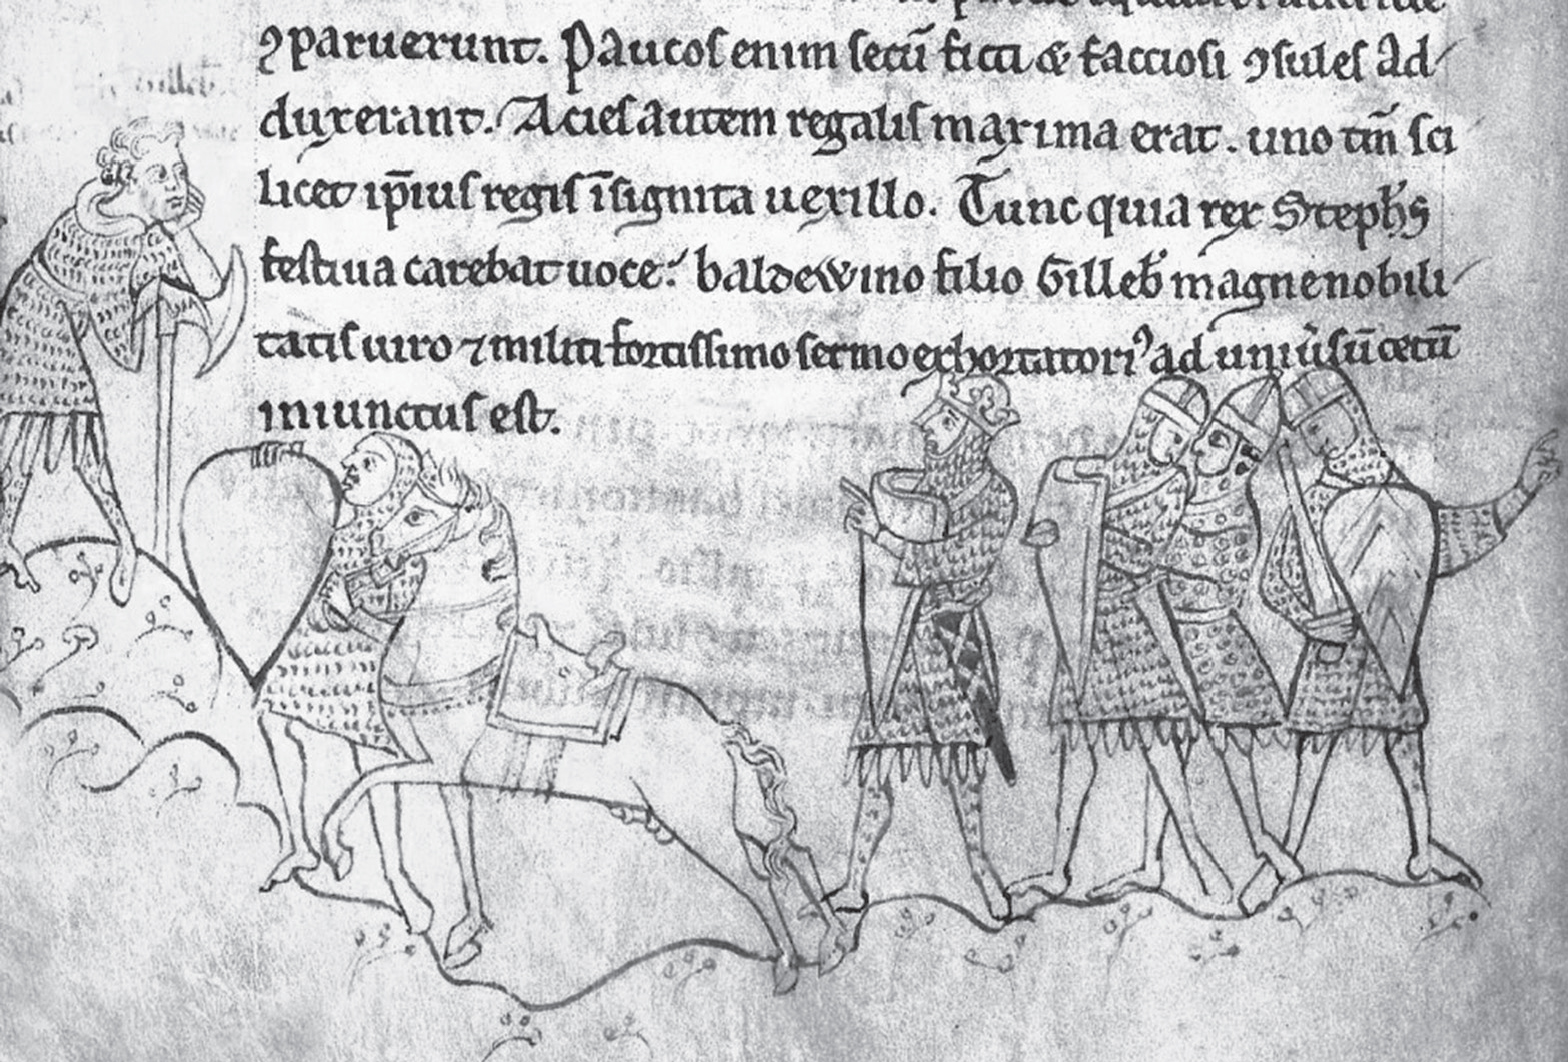 ꝯparuerunt. Paucos enim secū ficti & facciosi ꝯsules ad-
duxerant. Acies autem regalis maxima erat. uno tm̄ sci
licet ip̄ius regis īsignita uexillo. Tunc quia rex Steph̄s
festiua carebat uoce: baldewino filio Gilleb̄ magne nobili-
tatis uiro ⁊ militi fortissimo sermo exhortatoriꝰ ad uniūsū cetū
iniunctus est.